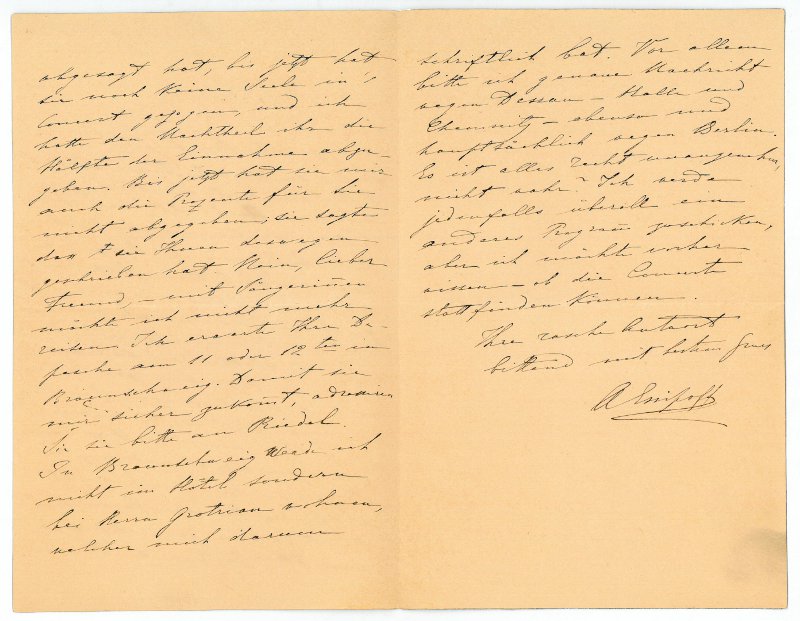 abgesagt hat, bis jetzt hat
sie noch keine Seele in's
Concert gezogen, und ich
hatte den Nachtheil ihr die
Hälfte der Einnahme abzu-
geben. Bis jetzt hat sie mir
auch die Prozente für Sie
nicht abgegeben; sie sagte
dass sie Ihnen deswegen
geschrieben hat. Nein, lieber
Freund, – mit Sängerinen
möchte ich nicht mehr
reisen. Ich erwarte Ihre De-
pesche am 11 oder 12ten in
Braunschweig. Damit sie
mir sicher zukomt, adressiren
Sie sie bitte an Riedel.
In Braunschweig werde ich
nicht im Hôtel sondern
bei Herrn Grotrian wohnen,
welcher mich darum
schriftlich bat. Vor allem
bitte ich genaue Nachricht
wegen Dessau – Halle und
Chemnitz – ebenso und
hauptsächlich wegen Berlin.
Es ist alles recht unangenehm,
nicht wahr? Ich werde
jedenfalls überall ein
anderes Program schicken,
aber ich möcht vorher
wissen – ob die Concerte
stattfinden können.
Ihre rasche Antwort
bittend mit bestem Gruss
A Essipoff